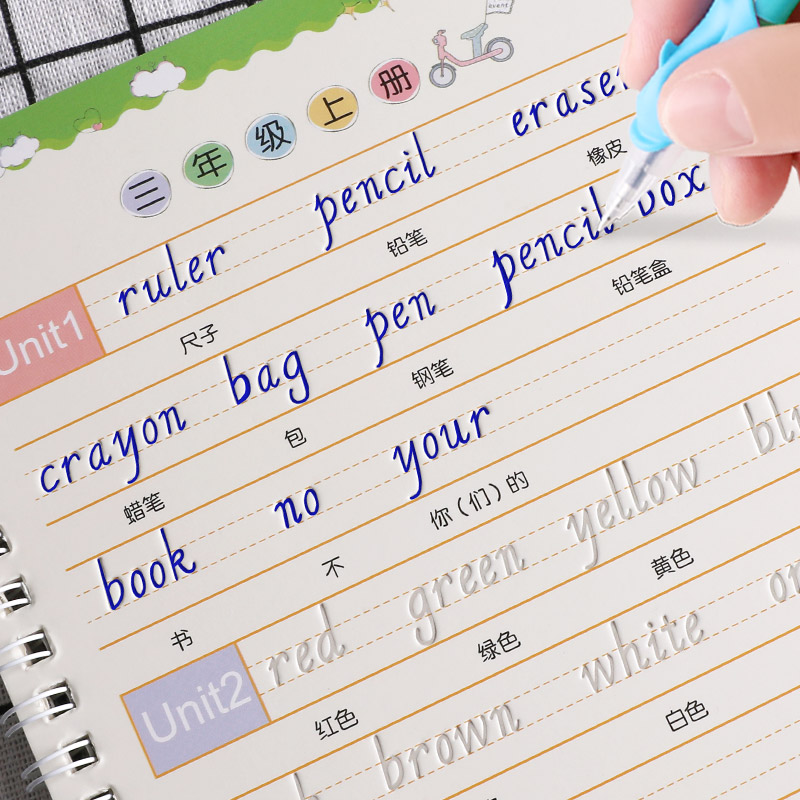 event
三年级上册
ruler pencil eraser
Unit1 尺子 铅笔 橡皮
crayon bag pen pencil box
蜡笔 包 钢笔 铅笔盒
book no your
书 不 你(们)的
Unit2 red green yellow
红色 绿色 黄色
brown white
白色